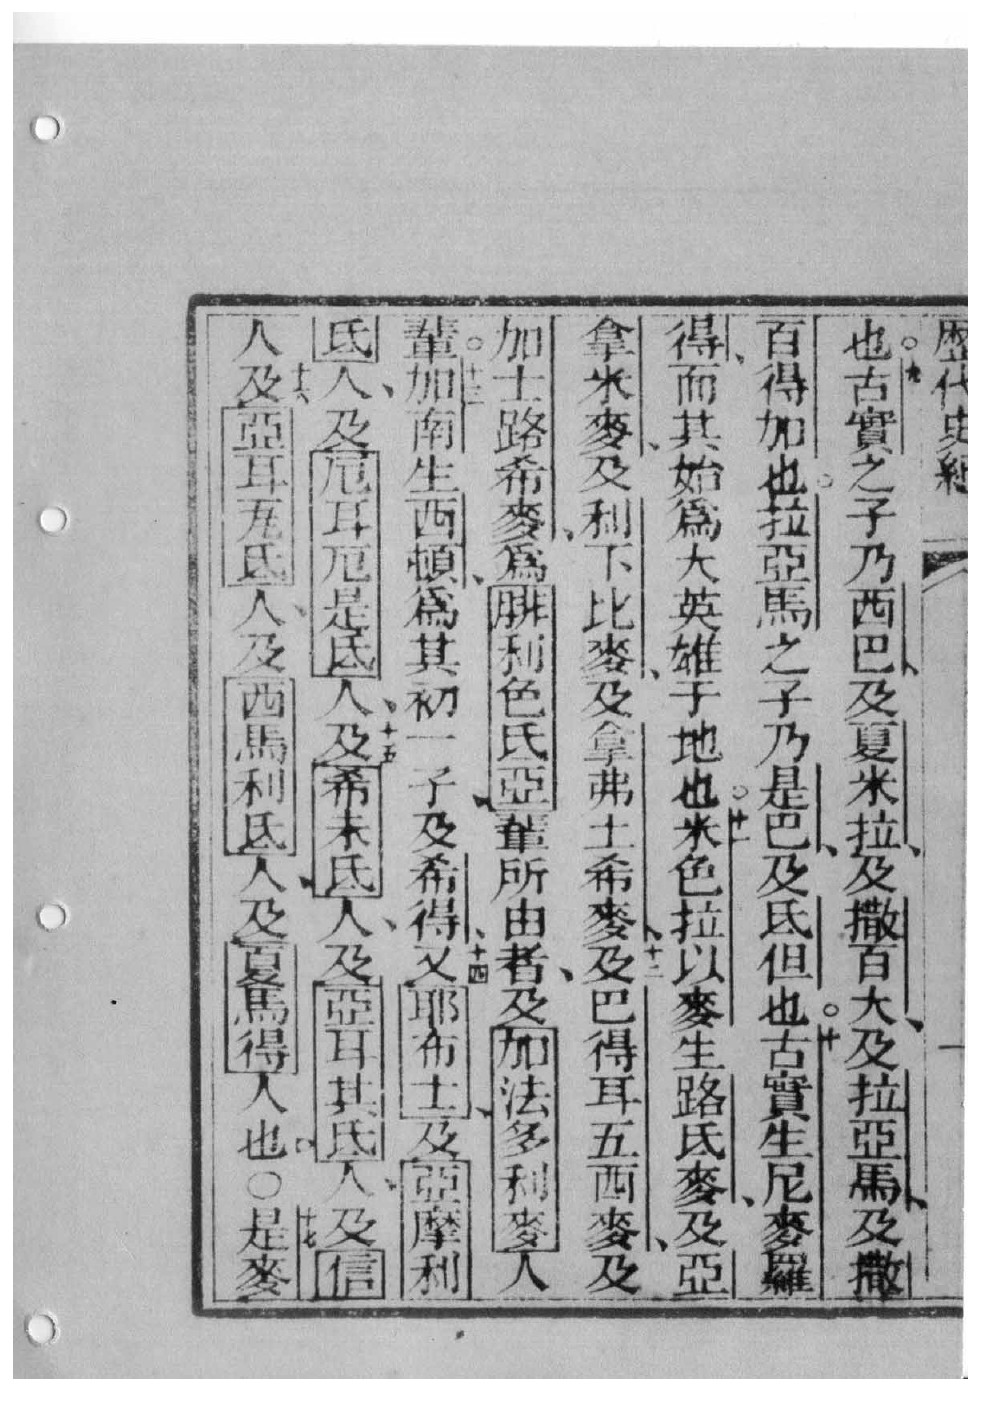 歷代史紀
一
也○九古實之子乃西巴、及夏米拉、及撒百大、及拉亞馬、及撒
百得加也○拉亞馬之子乃是巴、及氐但也○十古實生尼麥羅
得、而其始爲大英雄于地也○十一米色拉以麥生路氐麥、及亞
拿米麥、及利下比麥、及拿弗土希麥、十二及巴得耳五西麥、及
加士路希麥、爲腓利色氐亞輩所由者、及加法多利麥人
輩○十三加南生西頓、爲其初一子及希得、十四又耶布士、及亞摩利
氐人、及厄耳厄是氐人、十五及希未氐人、及亞耳其氐人、及信
人、十六及亞耳瓦氐人、及西馬利氐人、及夏馬得人也○○十七是麥